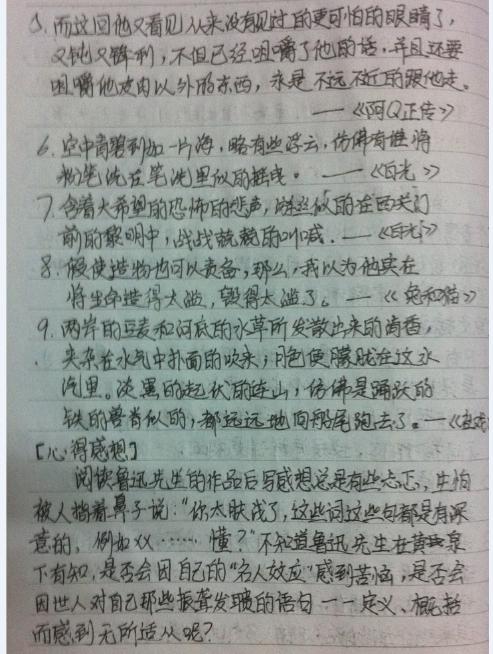 5. 而这回他又看见从来没有见过的更可怕的眼睛了，
又钝又锋利，不但已经咀嚼了他的话，并且还要
咀嚼他皮肉以外的东西，永是不远不近的跟他走。
——《阿Q正传》
6. 空中青碧到如一片海，略有些浮云，仿佛有谁将
粉笔洗在笔洗里似的摇曳。——《白光》
7. 含着大希望的恐怖的悲声，游丝似的在西关门
前的黎明中，战战兢兢的叫喊。——《白光》
8. 假使造物也可以责备，那么，我以为他实在
将生命造得太滥，毁得太滥了。——《兔和猫》
9. 两岸的豆麦和河底的水草所发散出来的清香，
夹杂在水气中扑面的吹来；月色便朦胧在这水
汽里。淡黑的起伏的连山，仿佛是踊跃的
铁的兽脊似的，都远远地向船尾跑去了。——《社戏》
[心得感想]
阅读鲁迅先生的作品后写感想总是有些忐忑，生怕
被人指着鼻子说：“你太肤浅了，这些词这些句都是有深
意的，例如XX……懂？”不知道鲁迅先生在黄泉
下有知，是否会因自己的“名人效应”感到苦恼，是否会
因世人对自己那些振聋发聩的语句一一定义、概括
而感到无所适从呢？